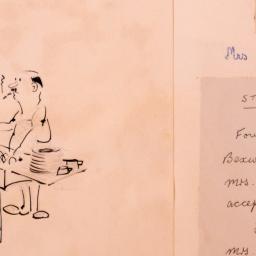 Mrs
ST
Fou
Bexw
mrs.
accep
ms